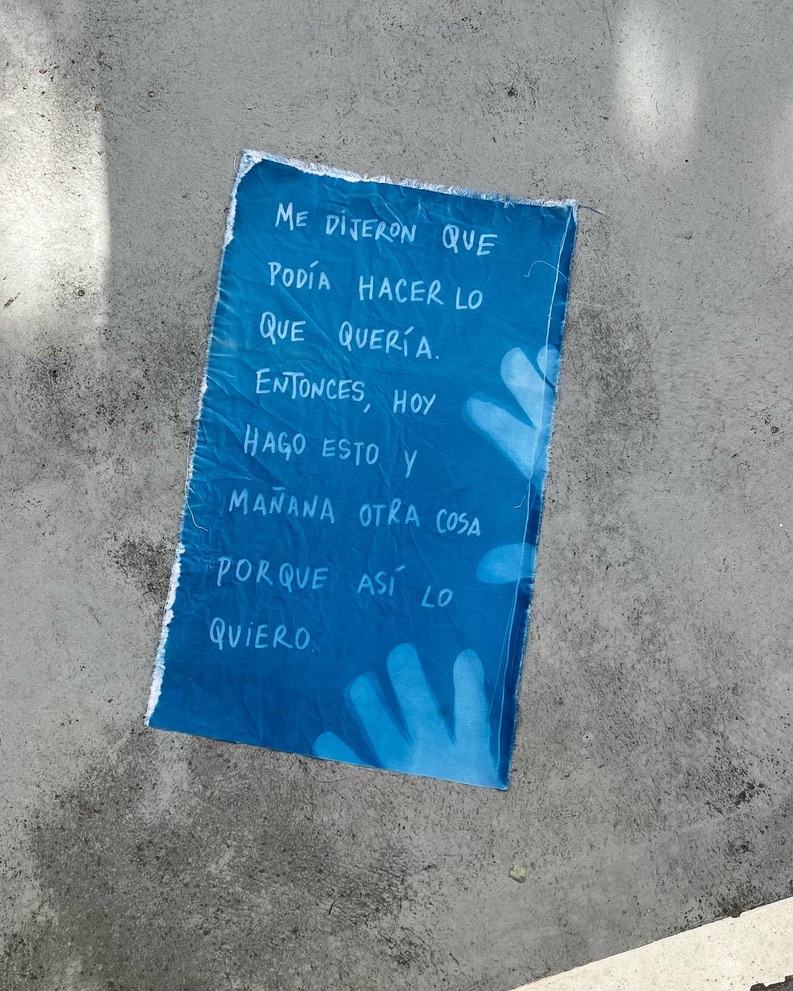 ME DIJERON QUE
PODÍA HACER LO
QUE QUERÍA.
ENTONCES, HOY
HAGO ESTO Y
MAÑANA OTRA COSA
PORQUE ASÍ LO
QUIERO.